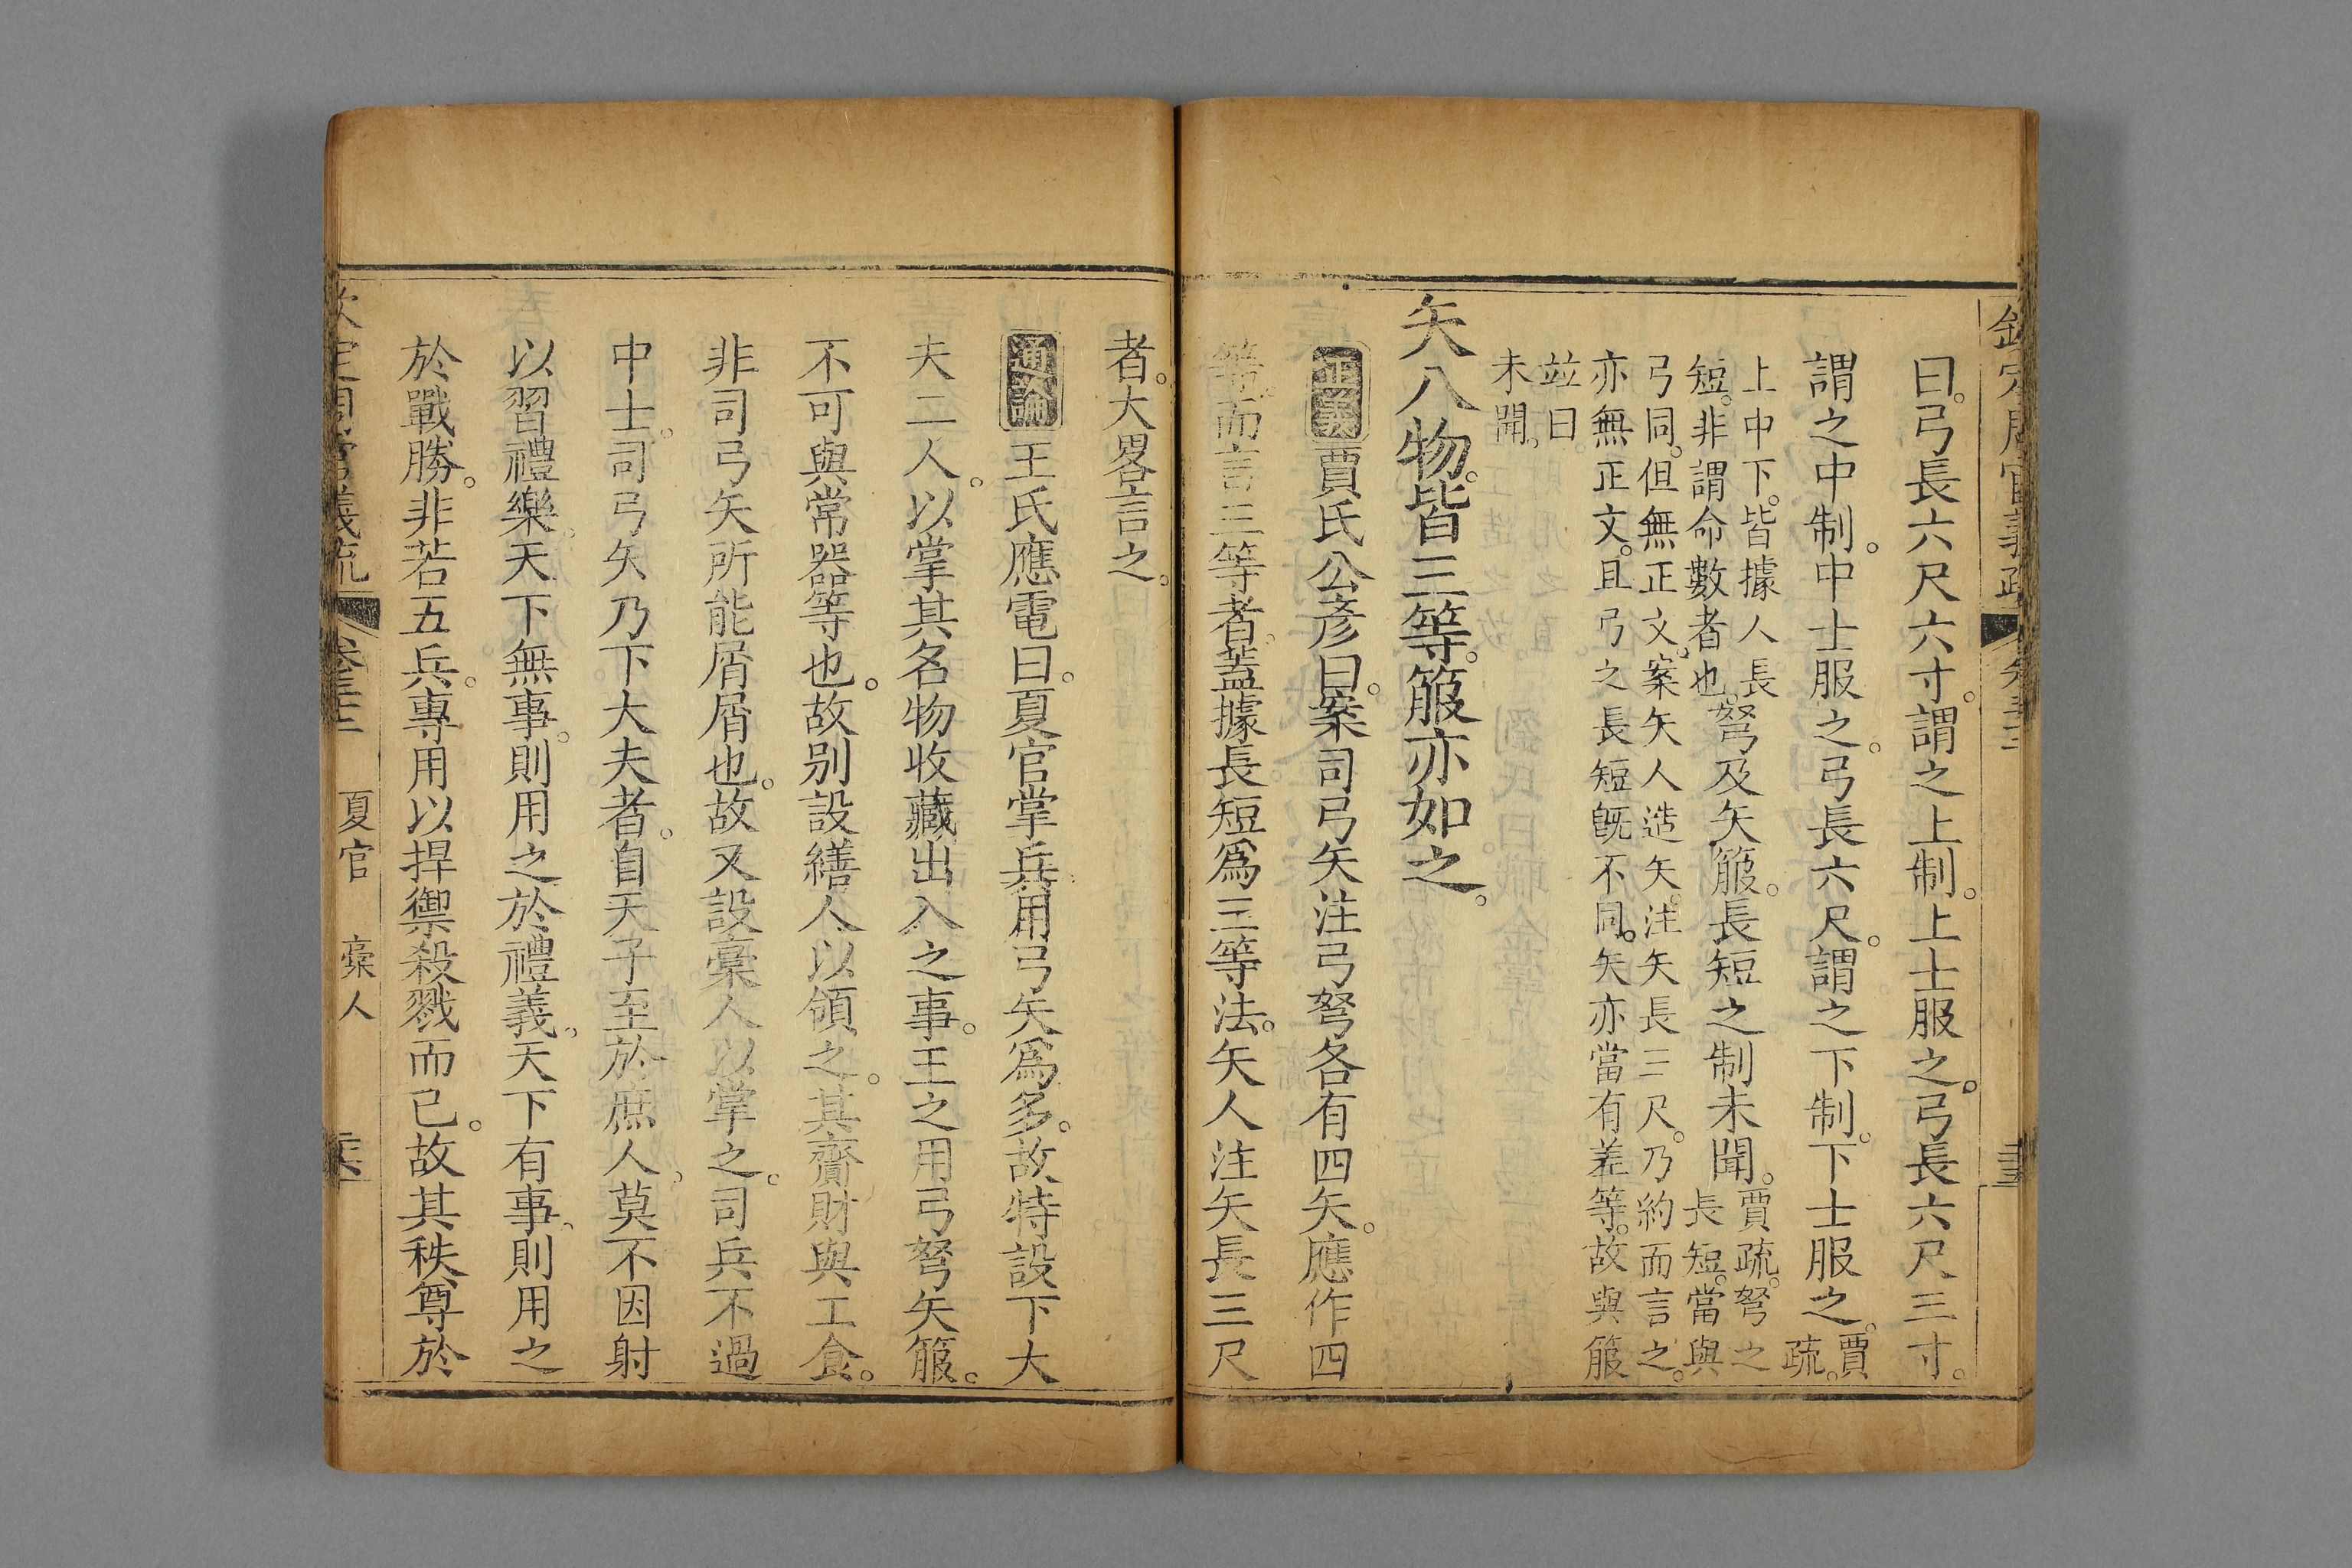 欽定周官義疏
曰。弓長六尺六寸。謂之上制。上士服之。弓長六尺三寸。
謂之中制。中士服之。弓長六尺。謂之下制。下士服之。賈疏。
上中下。皆據人長
短。非謂命數者也。
弩及矢箙。長短之制未聞。
賈疏。弩之
長短。當與
弓同。但無正文。案矢人造矢。注矢長三尺。乃約而言之。
亦無正文。且弓之長短旣不同。矢亦當有差等。故與箙
竝曰
未聞。
矢八物。皆三等。箙亦如之。
正義賈氏公彥曰。案司弓矢注弓弩各有四矢。應作四
等。而言三等者。蓋據長短爲三等法。矢人注矢長三尺
者。大畧言之。
通論王氏應電曰。夏官掌兵。用弓矢爲多。故特設下大
夫二人。以掌其名物收藏出入之事。王之用弓弩矢箙。
不可與常器等也。故別設繕人以領之。其齎財與工食。
非司弓矢所能屑屑也。故又設槀人以掌之。司兵不過
中士。司弓矢乃下大夫者。自天子至於庶人。莫不因射
以習禮樂。天下無事。則用之於禮義。天下有事。則用之
於戰勝。非若五兵。專用以捍禦殺戮而已。故其秩尊於
欽定周官義疏 卷三十三 夏官 槀人